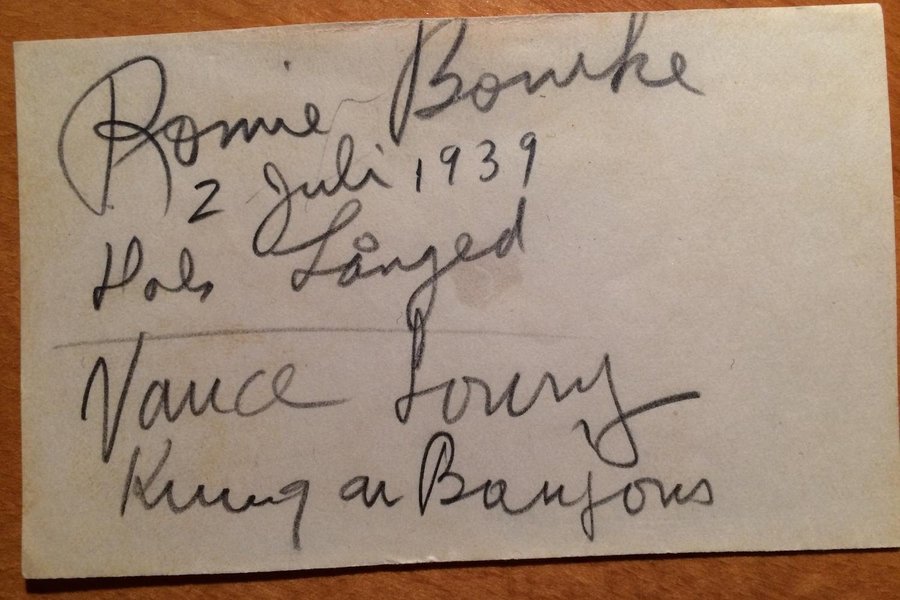 Romie Bourke
2 Juli 1939
Hols Långed
Vance Lowry
Kung av Banjons